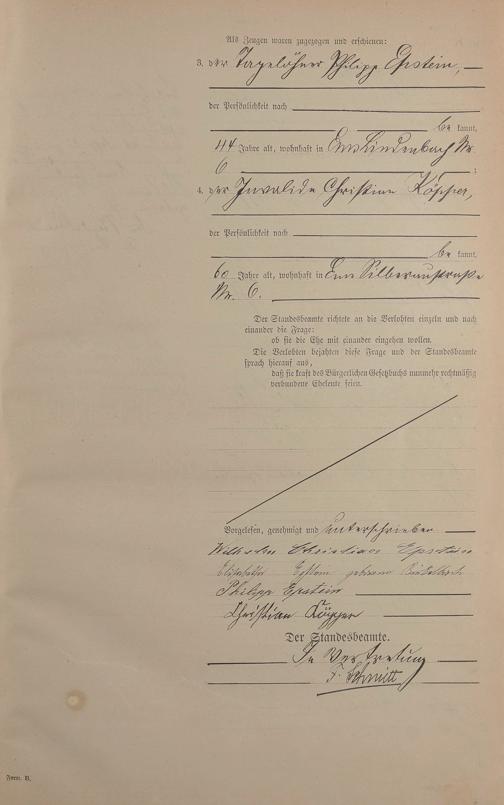 Als Zeugen waren zugezogen und erschienen:
3. der Tagelöhner Philipp Epstein,
der Persönlichkeit nach
be kannt,
44 Jahre alt, wohnhaft in Ems Lindenbach Nr.
6 ;
4. der Invalide Christian Köpper,
der Persönlichkeit nach
be kannt,
60 Jahre alt, wohnhaft in Ems Silberaustraße
Nr. 6.
Der Standesbeamte richtete an die Verlobten einzeln und nach
einander die Frage:
ob sie die Ehe mit einander eingehen wollen.
Die Verlobten bejahten diese Frage und der Standesbeamte
sprach hierauf aus,
daß sie kraft des Bürgerlichen Gesetzbuchs nunmehr rechtmäßig
verbundene Eheleute seien.
Vorgelesen, genehmigt und unterschrieben
Wilhelm Christian Epstein
Elisabetha Epstein geborene
Philipp Epstein
Christian Köpper
Der Standesbeamte.
In Vertretung
Schmitt
Form. B.